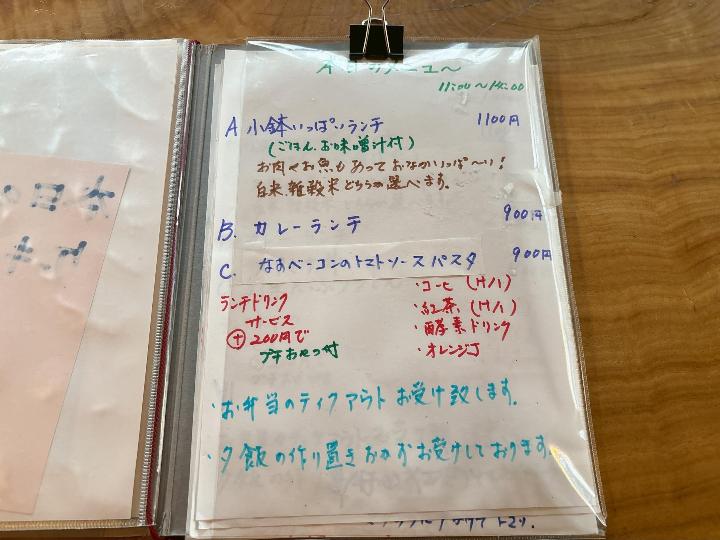 メニュー
11:00〜14:00
A 小鉢いっぱいランチ 1100円
(ごはん、お味噌汁付)
お肉もお魚もあっておなかいっぱ〜い!
白米、雑穀米どちらか選べます。
B. カレーランチ 900円
C. なすベーコンのトマトソースパスタ 900円
ランチドリンク
サービス
⊕200円で
プチおやつ付
・コーヒ (H/I)
・紅茶 (H/I)
・酵素ドリンク
・オレンジJ
・お弁当のテイクアウトお受け致します。
・夕飯の作り置きおかずお受けしております。
本日の